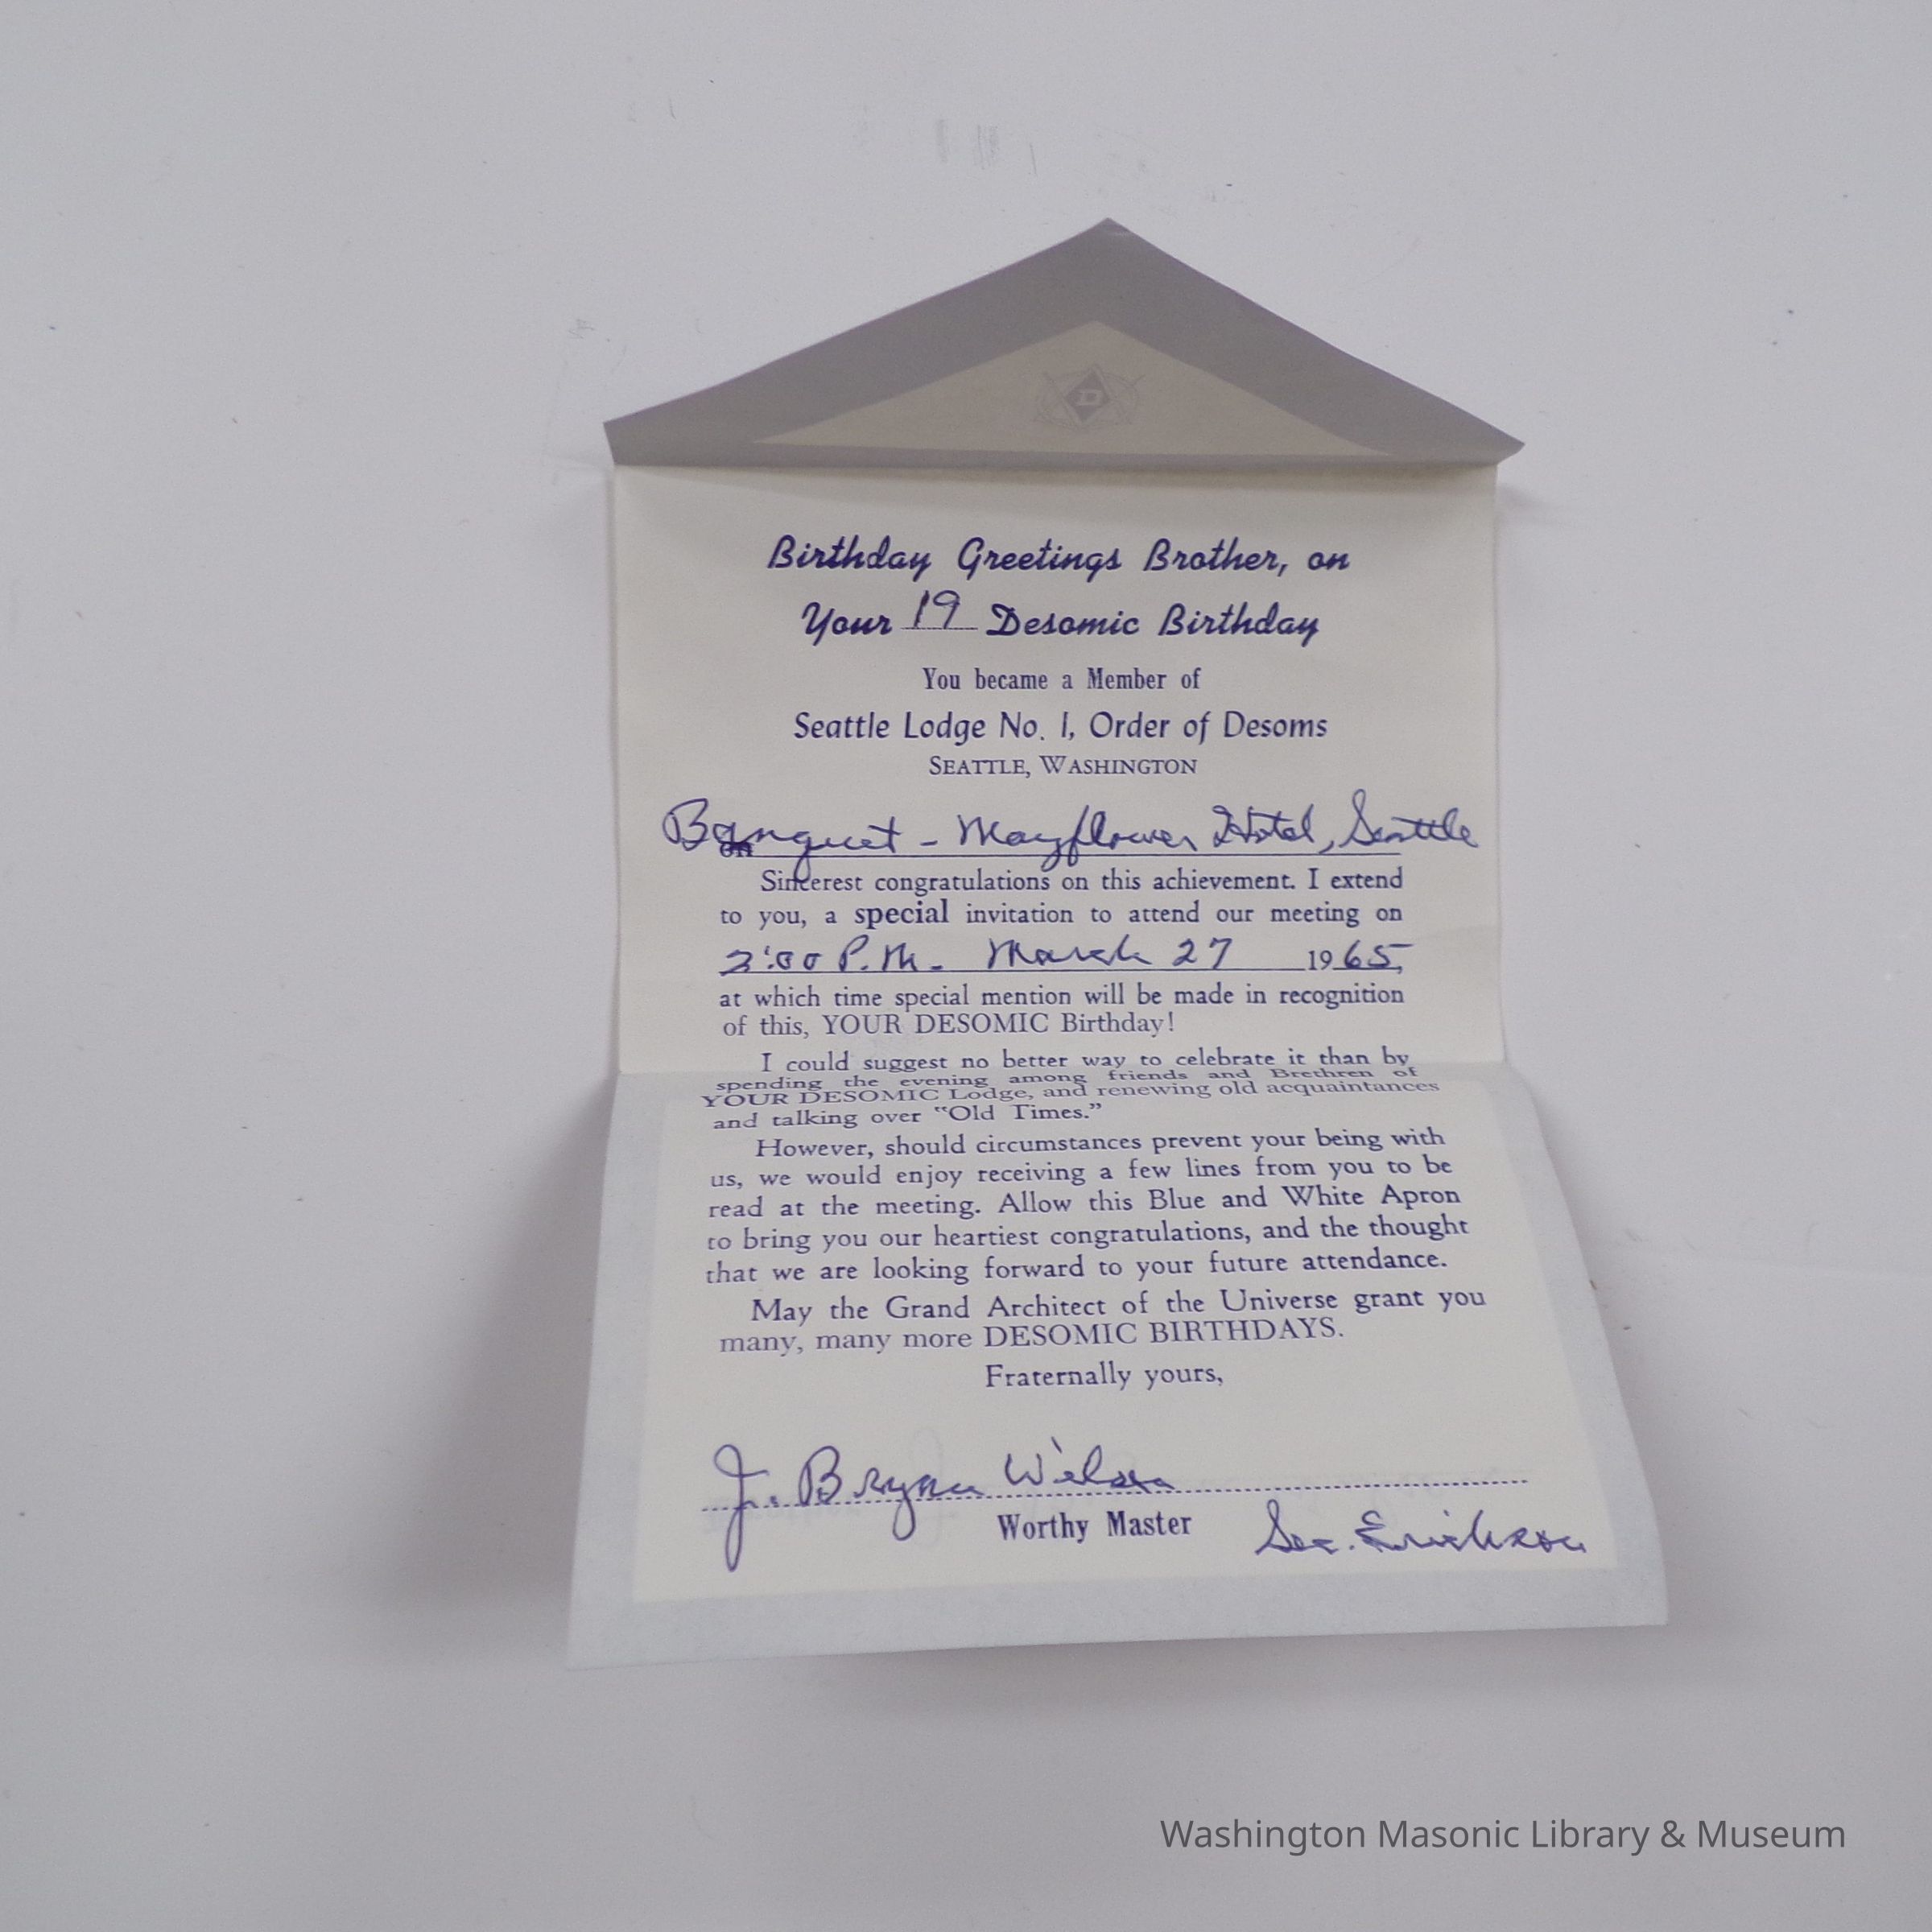 D
Birthday Greetings Brother, on
Your 19 Desomic Birthday
You became a Member of
Seattle Lodge No. 1, Order of Desoms
Seattle, Washington
Banquet - Mayflower Hotel, Seattle
on
Sincerest congratulations on this achievement. I extend
to you, a special invitation to attend our meeting on
2:00 P.M. March 27 1965,
at which time special mention will be made in recognition
of this, YOUR DESOMIC Birthday!
I could suggest no better way to celebrate it than by
spending the evening among friends and Brethren of
YOUR DESOMIC Lodge, and renewing old acquaintances
and talking over "Old Times."
However, should circumstances prevent your being with
us, we would enjoy receiving a few lines from you to be
read at the meeting. Allow this Blue and White Apron
to bring you our heartiest congratulations, and the thought
that we are looking forward to your future attendance.
May the Grand Architect of the Universe grant you
many, many more DESOMIC BIRTHDAYS.
Fraternally yours,
J. Bryan Wilson
Worthy Master Sec. Erickson
Washington Masonic Library & Museum